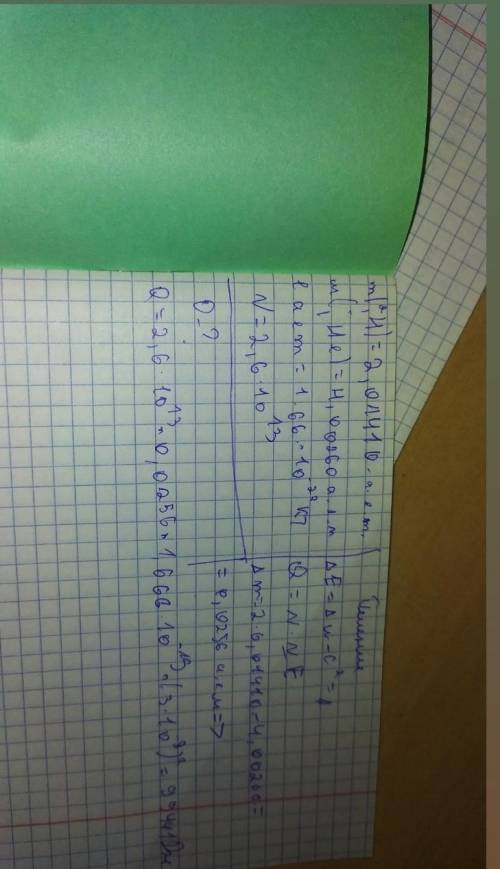 m(²₁H) = 2,01410 а.е.м.
m(₂He) = 4,00260 а.е.м
1 а.е.м = 1.66.·10⁻²⁷ кг
N = 2,6·10¹³
Q - ?
Решение
ΔE = Δm - c² =
Q = N · NE
Δm = 2·2,01410 - 4,00260 =
= 0,0256 а.е.м =>
Q = 2,6·10¹³·0,0256·1,66·10 ·(3·10⁸)² =